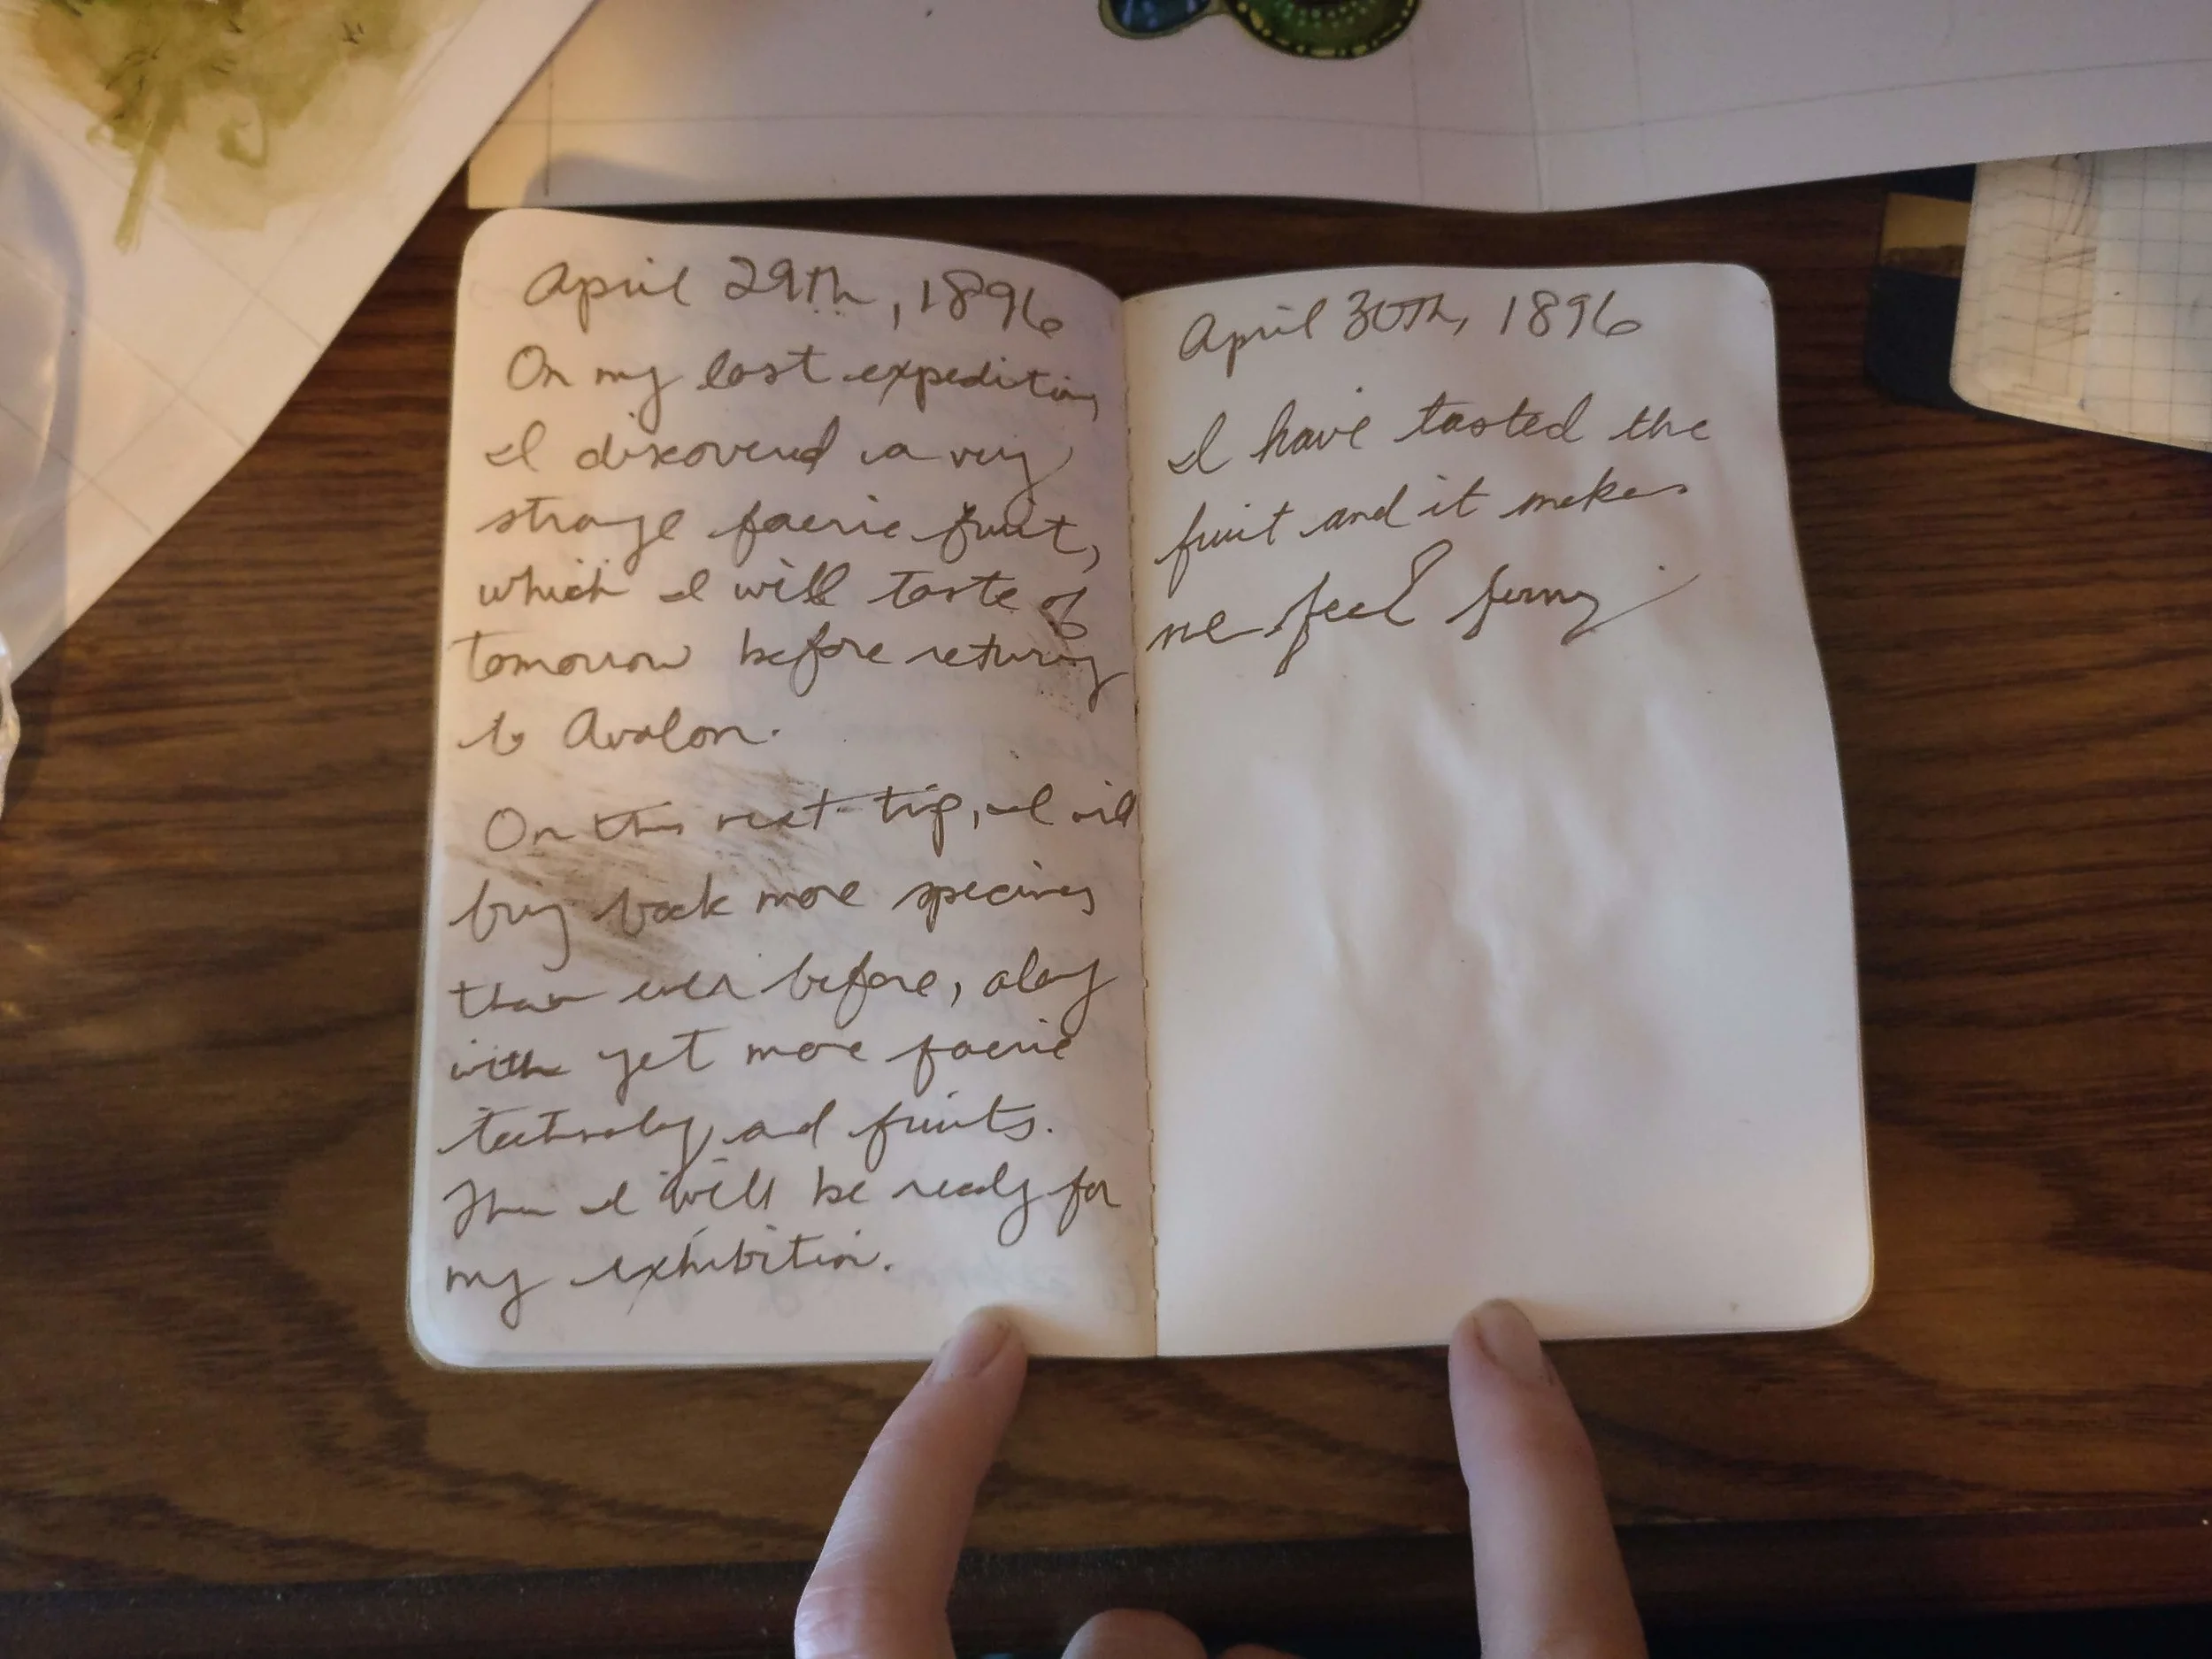 April 29th, 1896
On my last expedition,
I discovered a very
strange faerie fruit,
which I will taste of
tomorrow before returning
to Avalon.
On this next trip, I will
bring back more specimens
than ever before, along
with yet more faerie
technology and fruits.
Then I will be ready for
my exhibition.
April 30th, 1896
I have tasted the
fruit and it makes
me feel funny